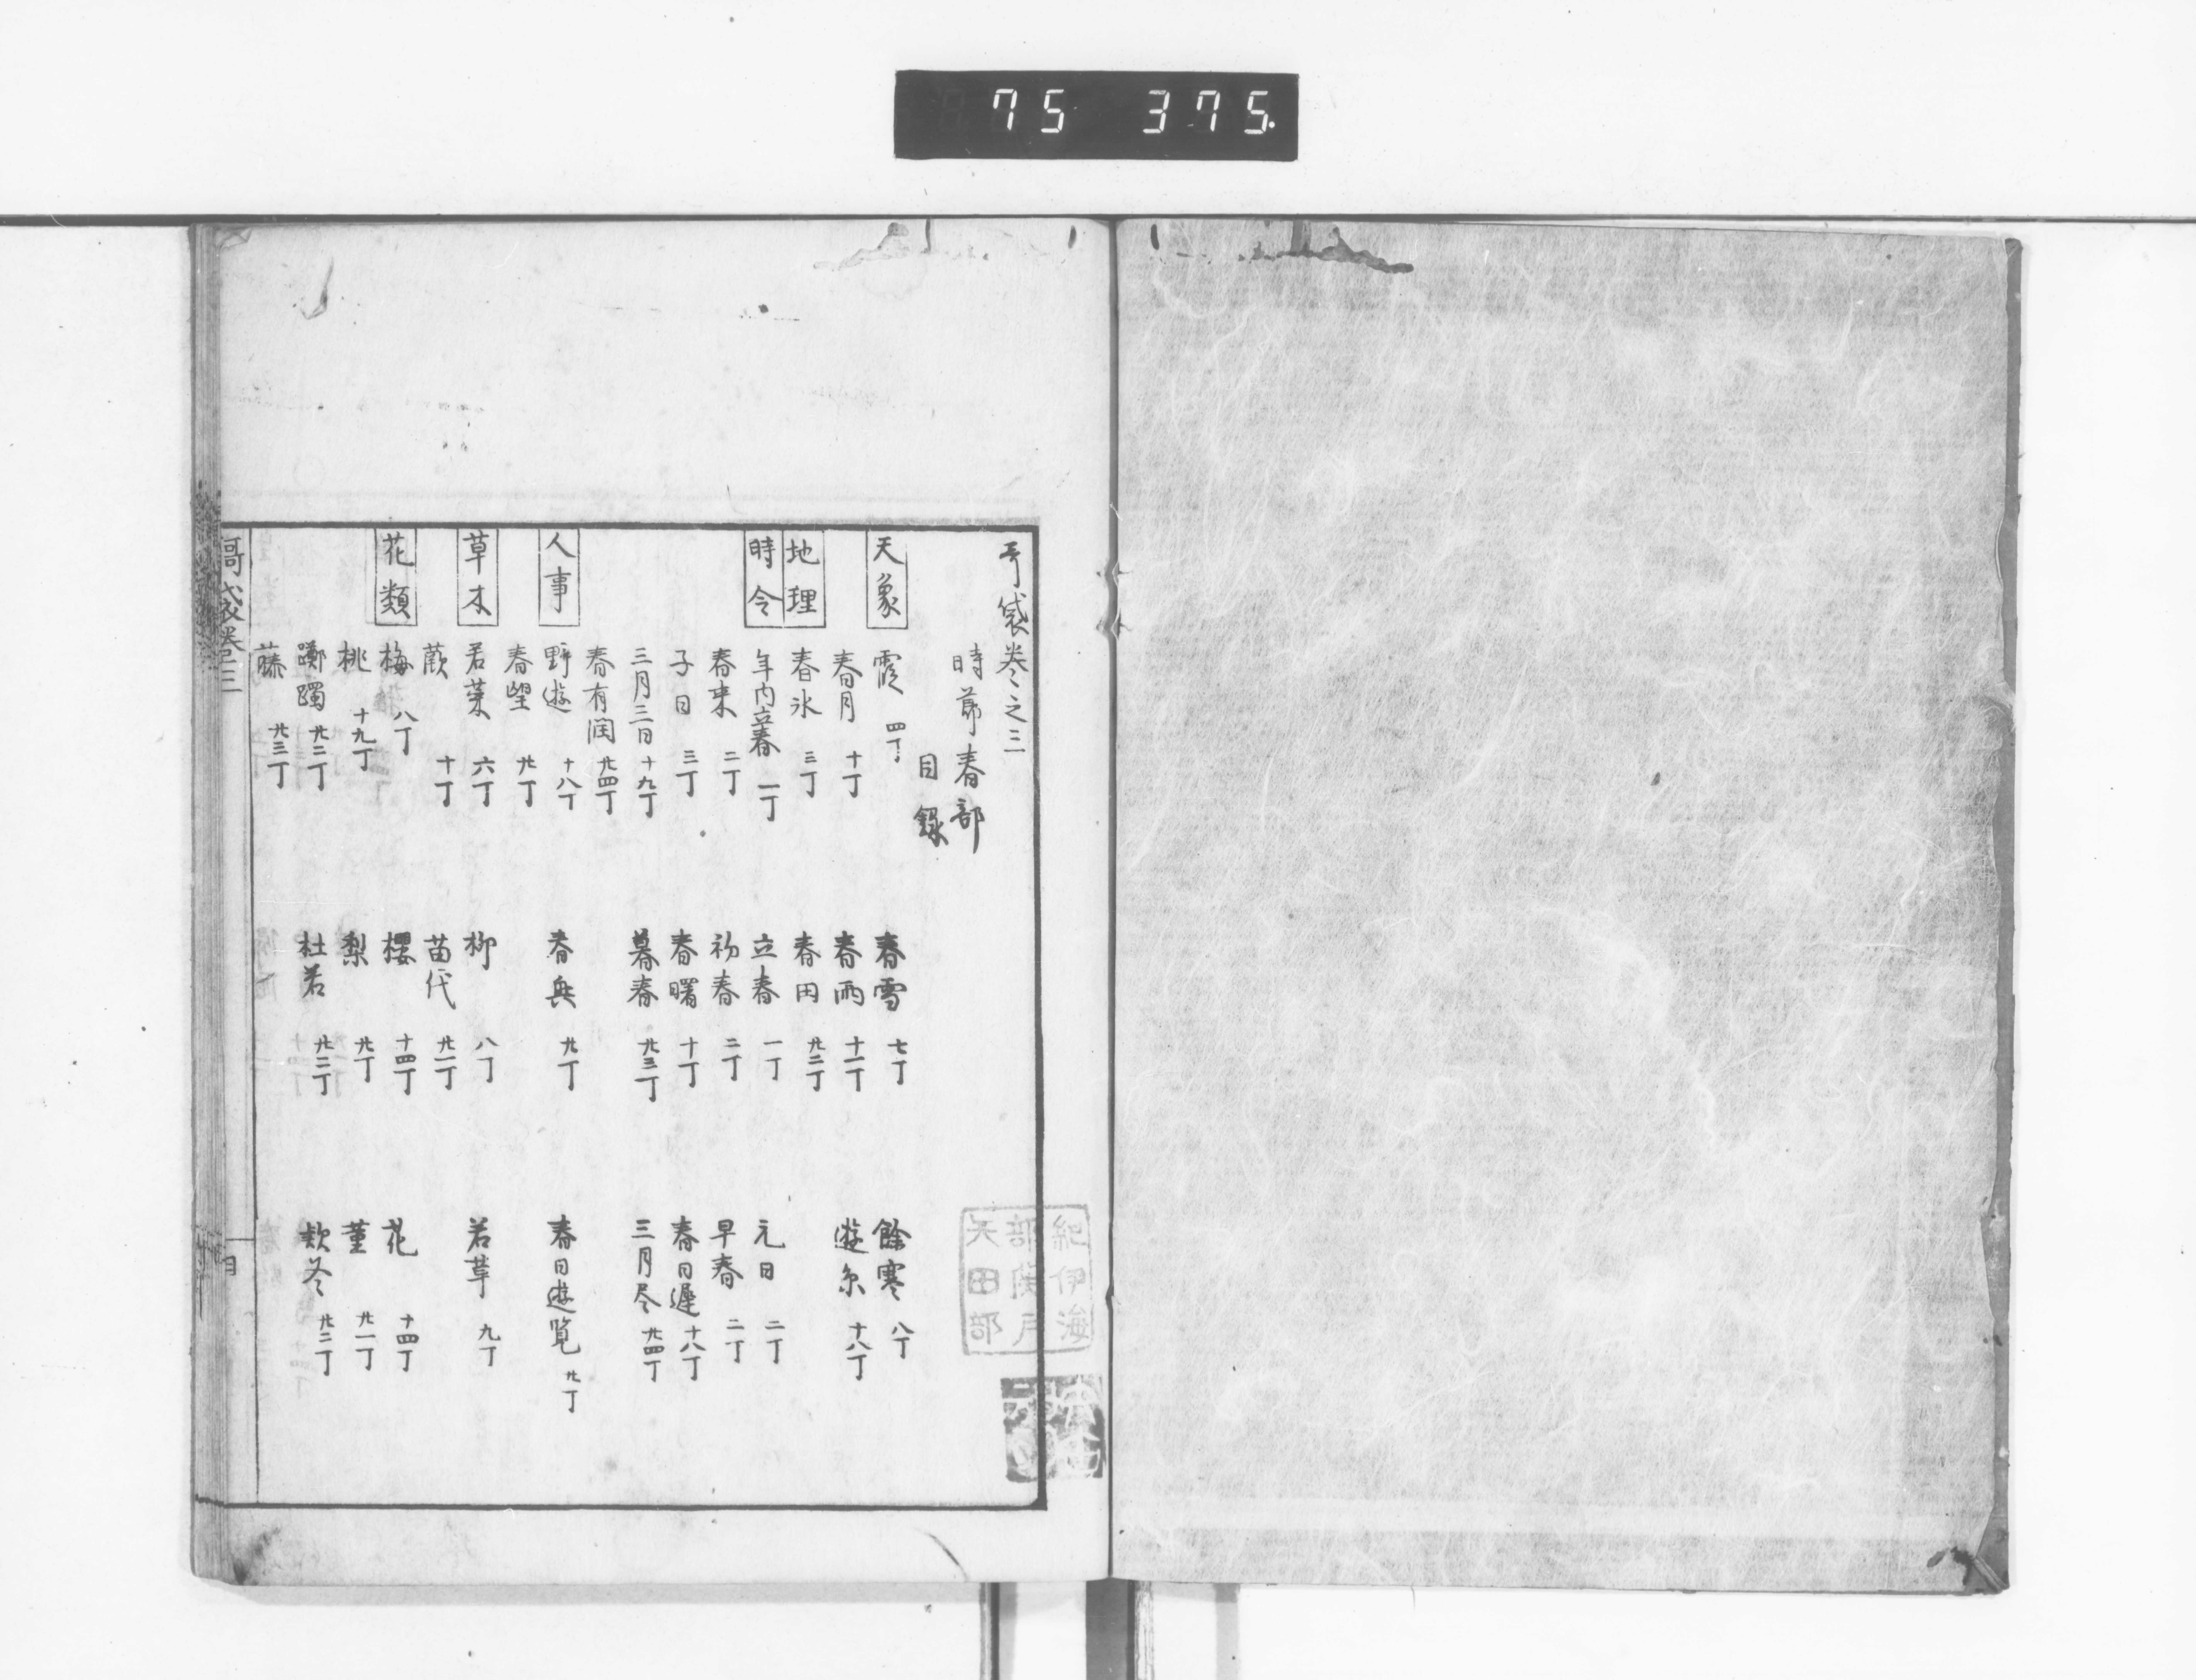 75 375.
哥袋巻之三
時節春部
目録
天象 霞 四丁 春雪 七丁 餘寒 八丁
春月 十丁 春雨 十一丁 遊糸 十八丁
地理 春氷 三丁 春田 廿二丁
時令 年内立春 一丁 立春 一丁 元日 二丁
春来 二丁 初春 二丁 早春 二丁
子日 三丁 春曙 十丁 春日遅 十八丁
三月三日 十九丁 暮春 廿三丁 三月尽 廿四丁
春有閏 廿四丁
人事 野遊 十八丁 春興 廿丁 春日遊覧 廿丁
春望 廿丁
草木 若菜 六丁 柳 八丁 若草 九丁
蕨 十丁 苗代 廿一丁
花類 梅 八丁 櫻 十四丁 花 十四丁
桃 十九丁 梨 廿丁 菫 廿一丁
躑躅 廿二丁 杜若 廿二丁 欵冬 廿二丁
藤 廿三丁
謌袋巻三
目
紀伊海
部関戸
矢田部